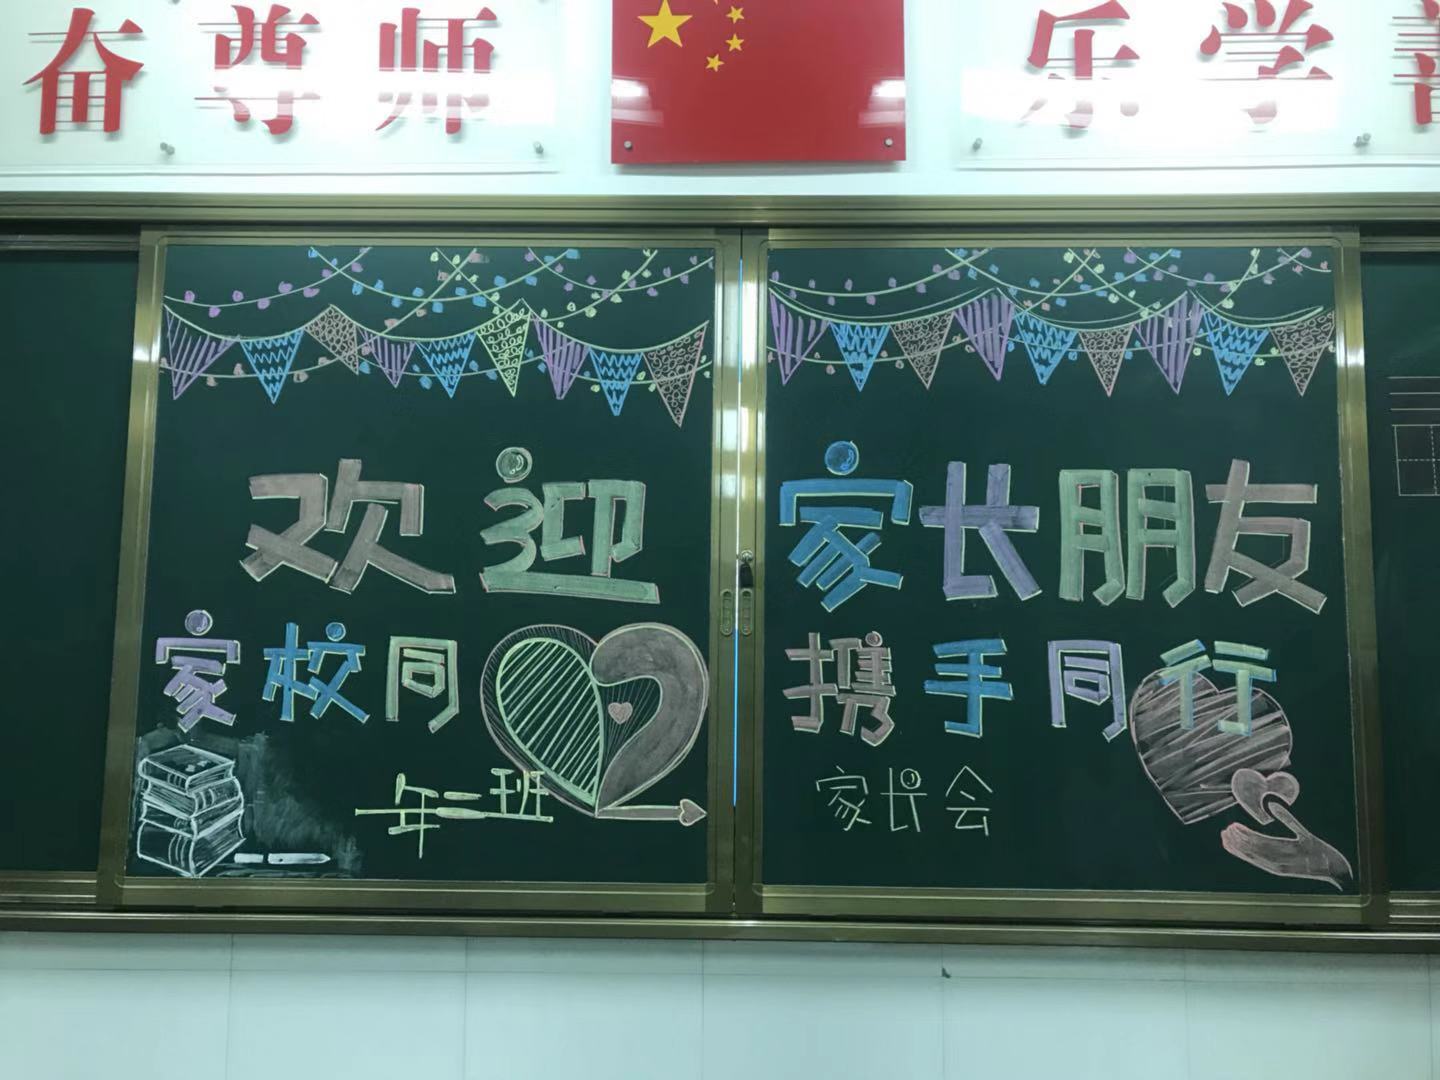 奋 尊师 乐学
欢迎 家长朋友
家校同心 携手同行
一年二班 家长会